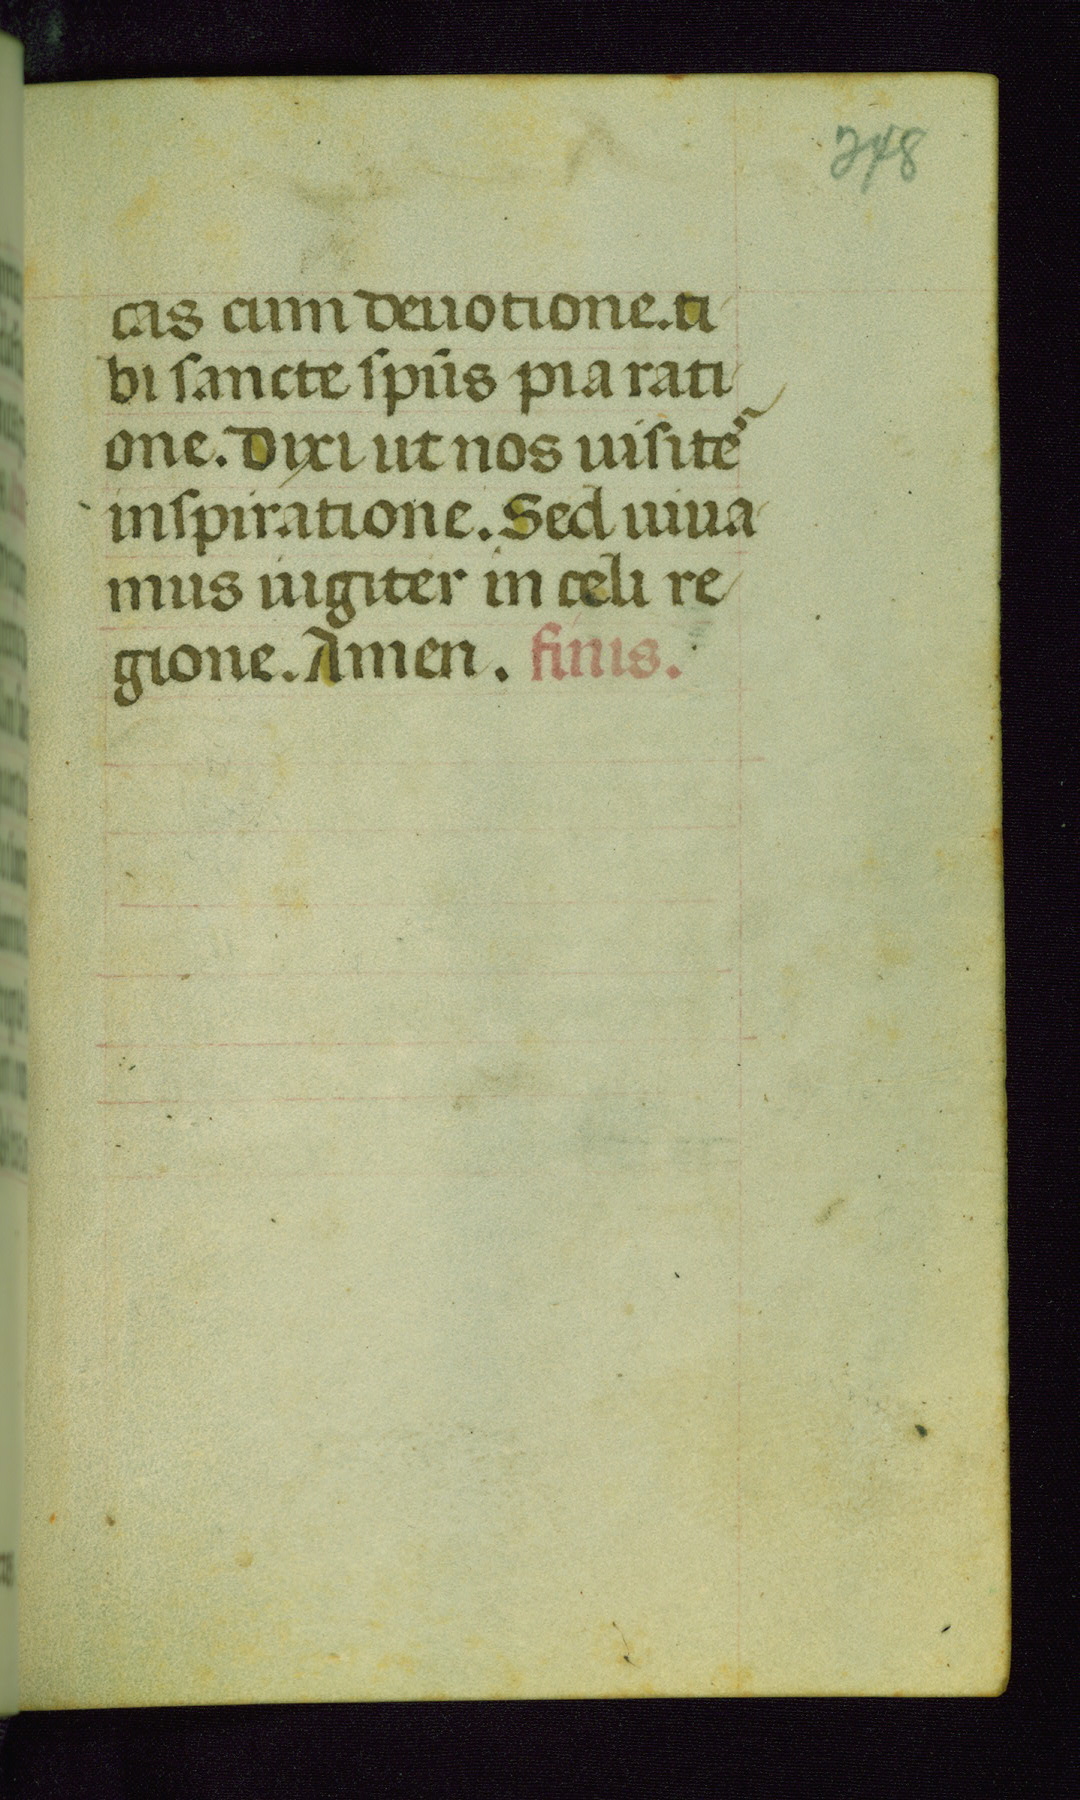 248
cas cum deuotione. ti
bi sancte spũs pia rati
one. Dixi ut nos uisitẽ
inspiratione. Sed uiua
mus iugiter in celi re
gione. Amen. finis.